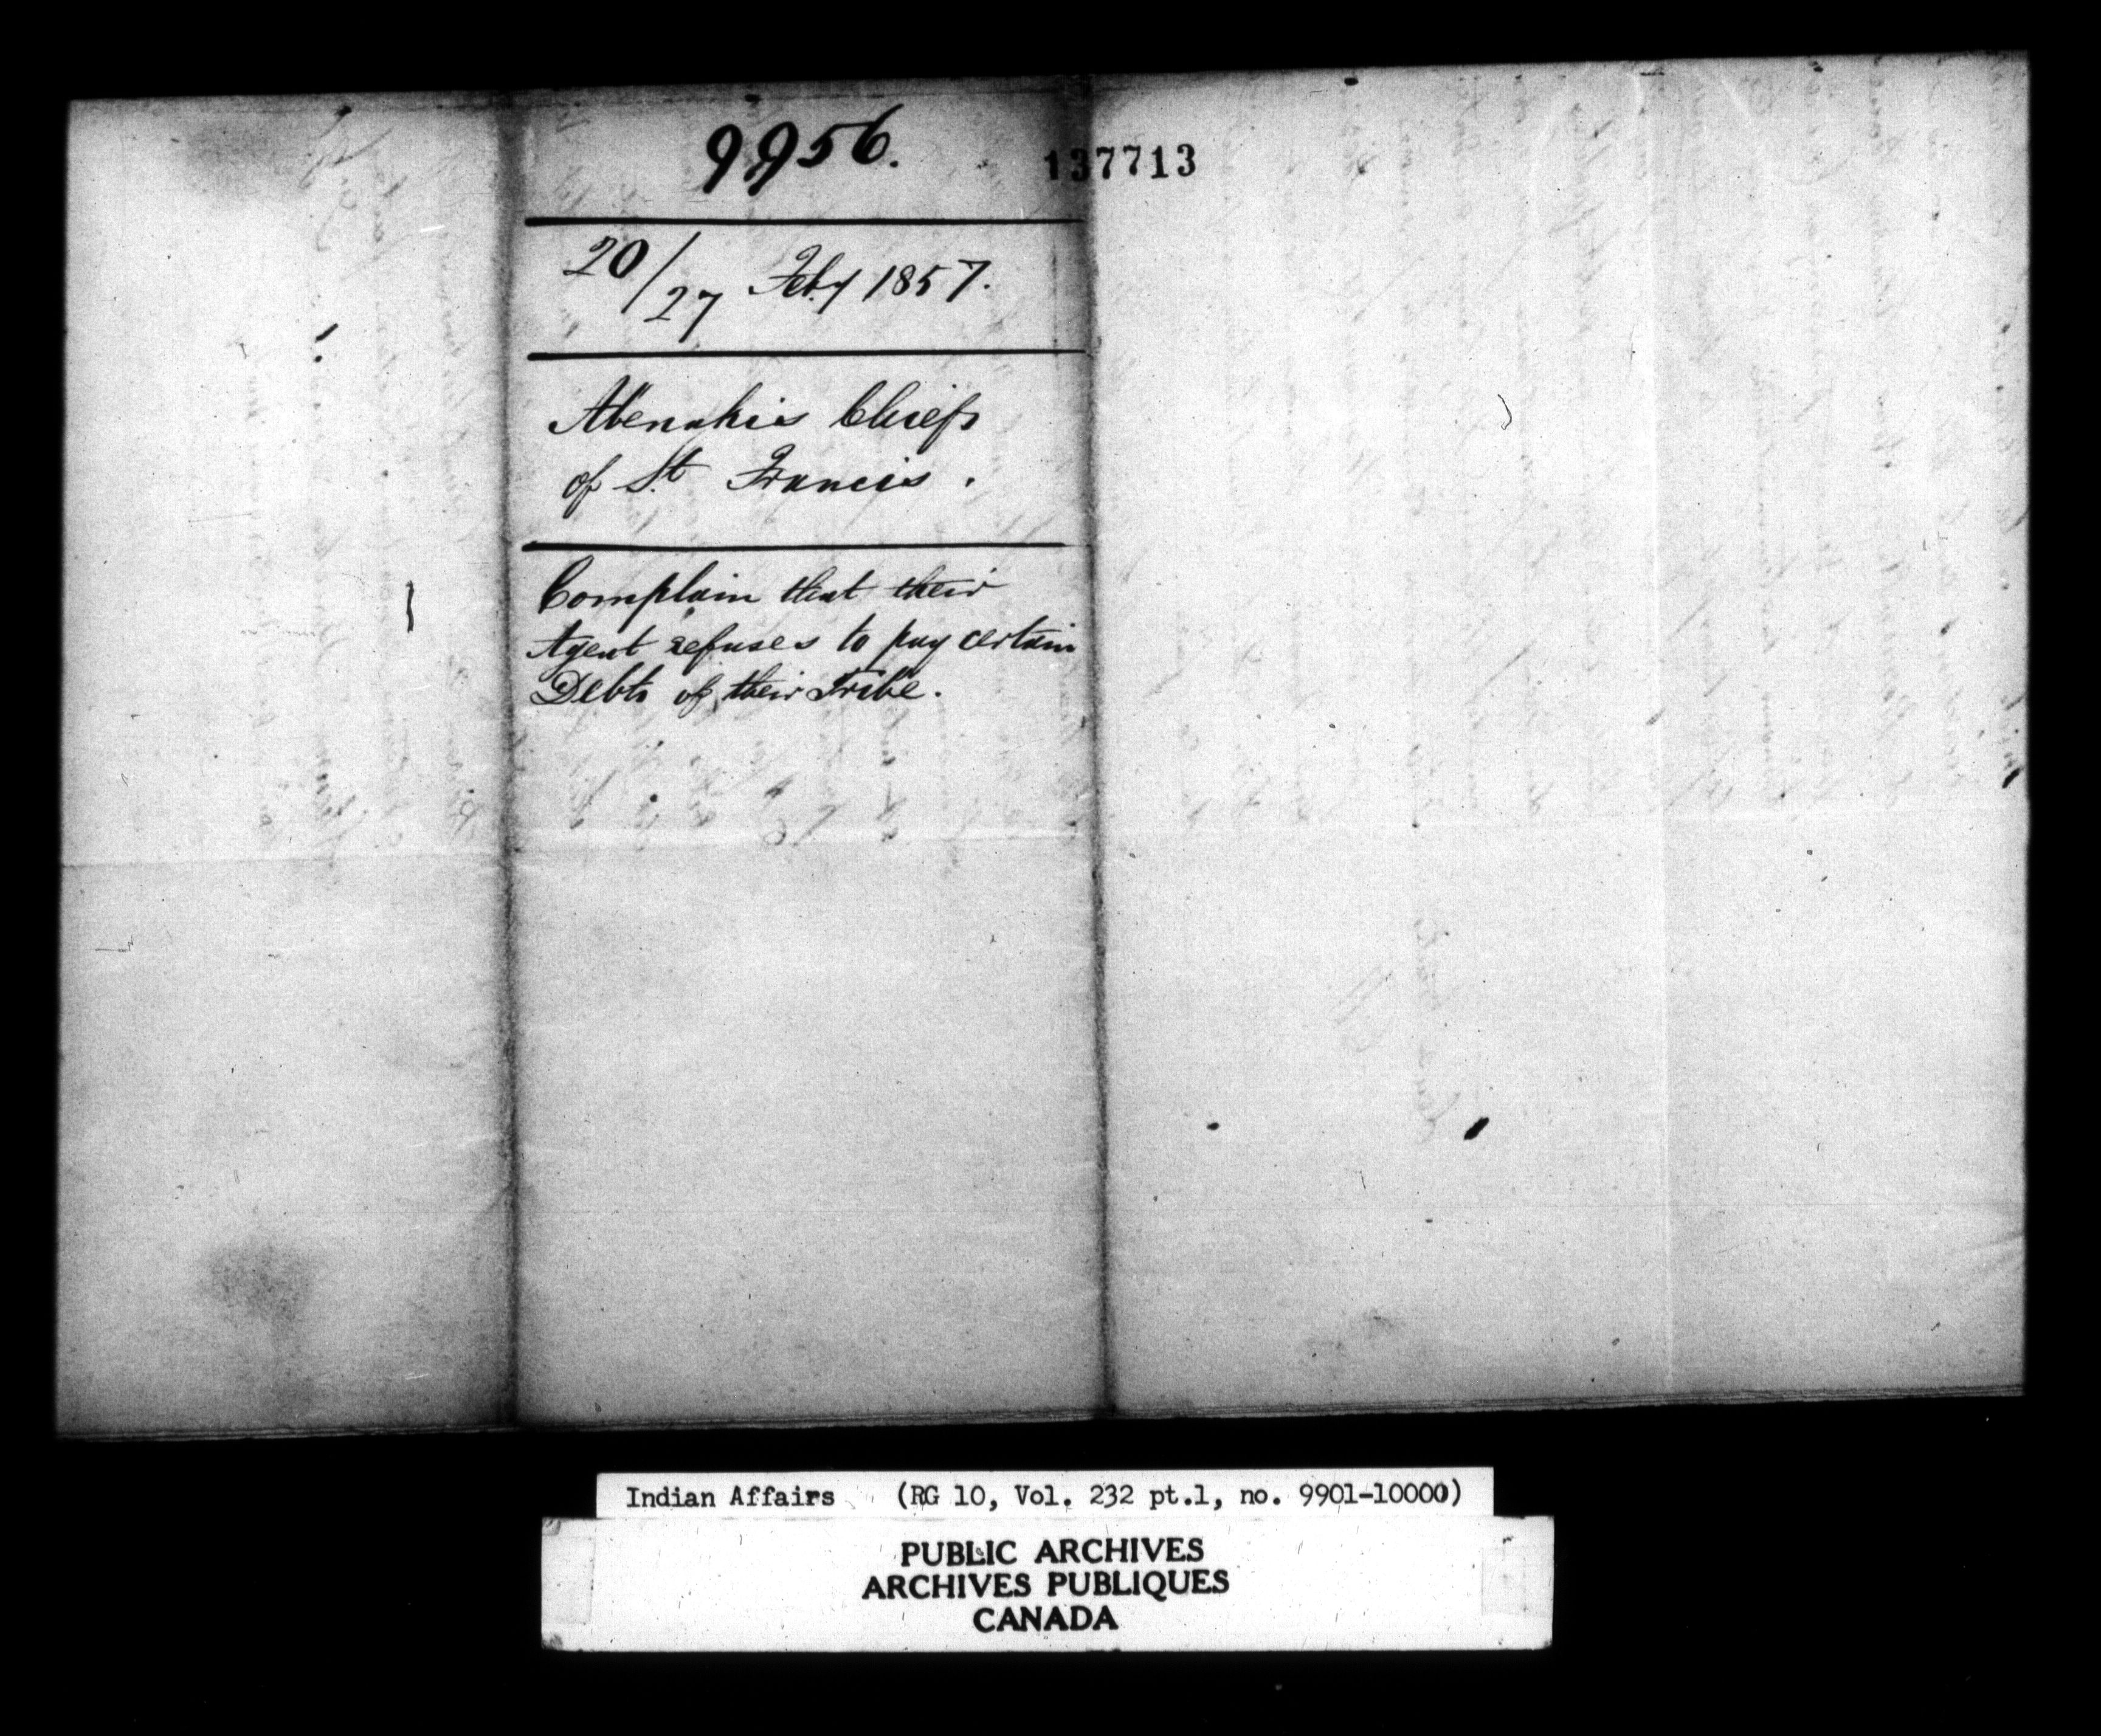 9956.
137713
20/27 Feby 1857.
Abenakis Chiefs
of St Francis.
Complain that their
Agent refuses to pay certain
Debts of their Tribe.
Indian Affairs (RG 10, Vol. 232 pt.1, no. 9901-10000)
PUBLIC ARCHIVES
ARCHIVES PUBLIQUES
CANADA